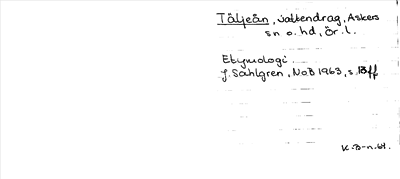 Täljeån, vattendrag, Askers
sn o. hd, Ör. l.
Etymologi
J. Sahlgren, NoB 1963, s. 13 ff
K.B-n.